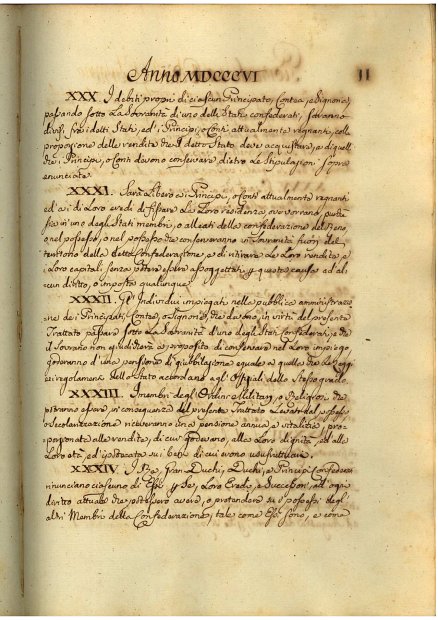 Anno MDCCCVI
11
XXX. I debiti propri di ciascun Principato, Contea, e Signoria,
passando sotto la Sovranità di uno delli Stati confederati, saranno
divisi fra i detti Stati, ed i Principi, o Conti attualmente regnanti, colla
proporzione delle rendite che il detto Stato deve acquistare, e di quelle
che i Principi, o Conti devono conservare dietro le stipulazioni sopra
enunciate.
XXXI. Sarà libero ai Principi, o Conti attualmente regnanti
ed ai di Loro eredi di fissare la loro residenza ove vorranno, purchè
sia in uno degli Stati membri, o alleati della confederazione del Reno,
o nei possessi, che conserveranno in Sovranità fuori del
territorio della detta Confederazione, e di ritirare le Loro rendite, e
i Loro capitali senza potere essere assoggettati per questa causa ad al-
cun diritto, o imposta qualunque.
XXXII. Gl' Individui impiegati nella pubblica amministrazio-
ne dei Principati, Contee, o Signorie, che devono, in virtù del presente
Trattato passare sotto la Sovranità d'uno degli Stati Confederati, e che
il Sovrano non giudicherà a proposito di conservare nel Loro impiego
goderanno d'una pensione di giubbilazione eguale a quella che le Leggi
e i regolamenti dello Stato accordano agl' Offiziali dello stesso grado.
XXXIII. I membri degl' Ordini Militari, o Religiosi che
potranno essere, in conseguenza del presente Trattato levati dal possesso
o Secolarizzati riceveranno una pensione annua e vitalizia, pro-
porzionata alle rendite, di cui godevano, alla Loro dignità, ed alla
Loro età, ed ipotecata sui beni di cui erano usufruttuari.
XXXIV. I Re, Gran Duchi, Duchi, e Principi Confederati
rinunciano ciascuno di Essi per Se, Loro Eredi, e Successori, ad ogni
diritto attuale che potessero avere, o pretendere su i possessi degl'
altri Membri della Confederazione, tale come Essi sono, e come